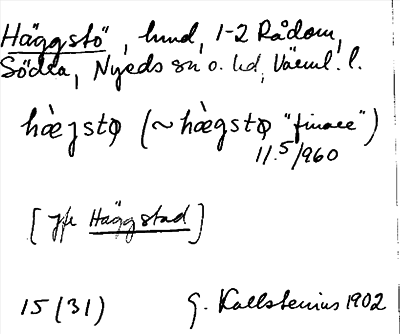 Häggstö, hmd, 1-2 Rådom,
Södra, Nyeds sn o. hd, Värml. l.
hæ̀jstꝋ (~ hæ̀gstꝋ "finare")
11.5/960
[jfr Häggstad]
15 (31) G. Kallstenius 1902